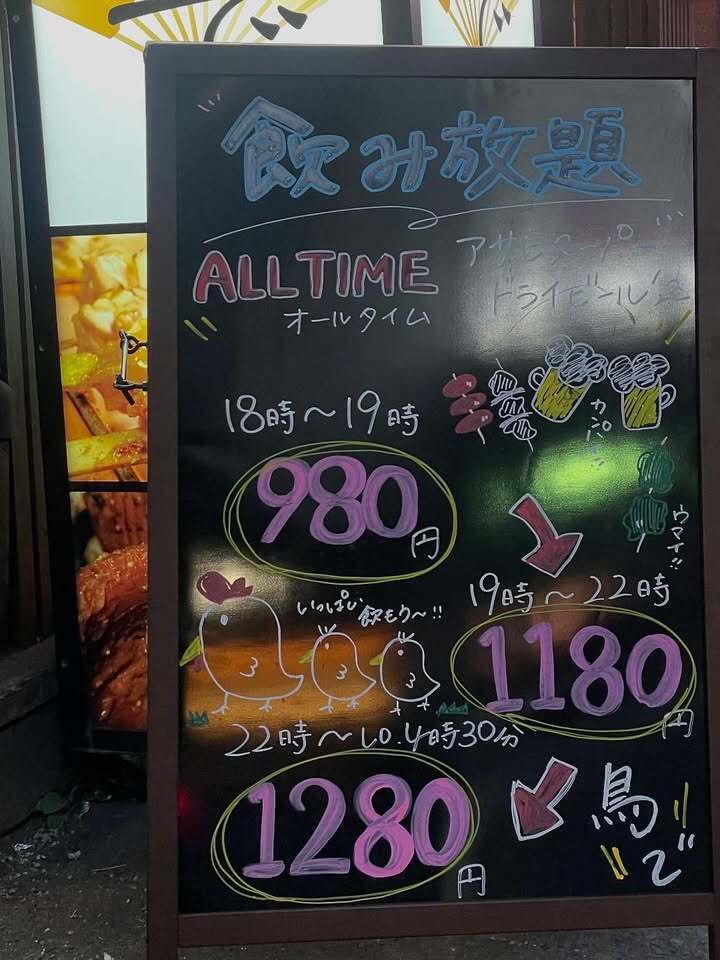 飲み放題
ALLTIME
オールタイム
アサヒスーパー
ドライビール
18時～19時
980円
カンパイ!!
ウマイ!!
19時～22時
1180円
いっぱい
飲もう～!!
22時～LO.4時30分
1280円
鳥